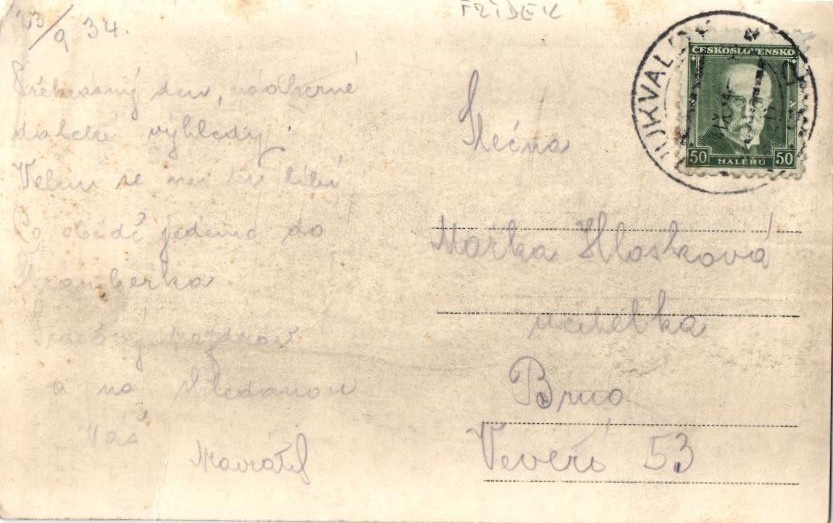 23/9 34.
FRÝDEK
Překrásný den, nádherné
daleké výhledy.
Velmi se mi tu líbí
Po obědě jedeme do
Štramberka
Srdečný pozdrav
a na shledanou
Váš
Navrátil
HUKVALDY
ČESKOSLOVENSKO
50 HALÉŘŮ 50
Slečna
Mařka Hlosková
učitelka
Brno
Veveří 53